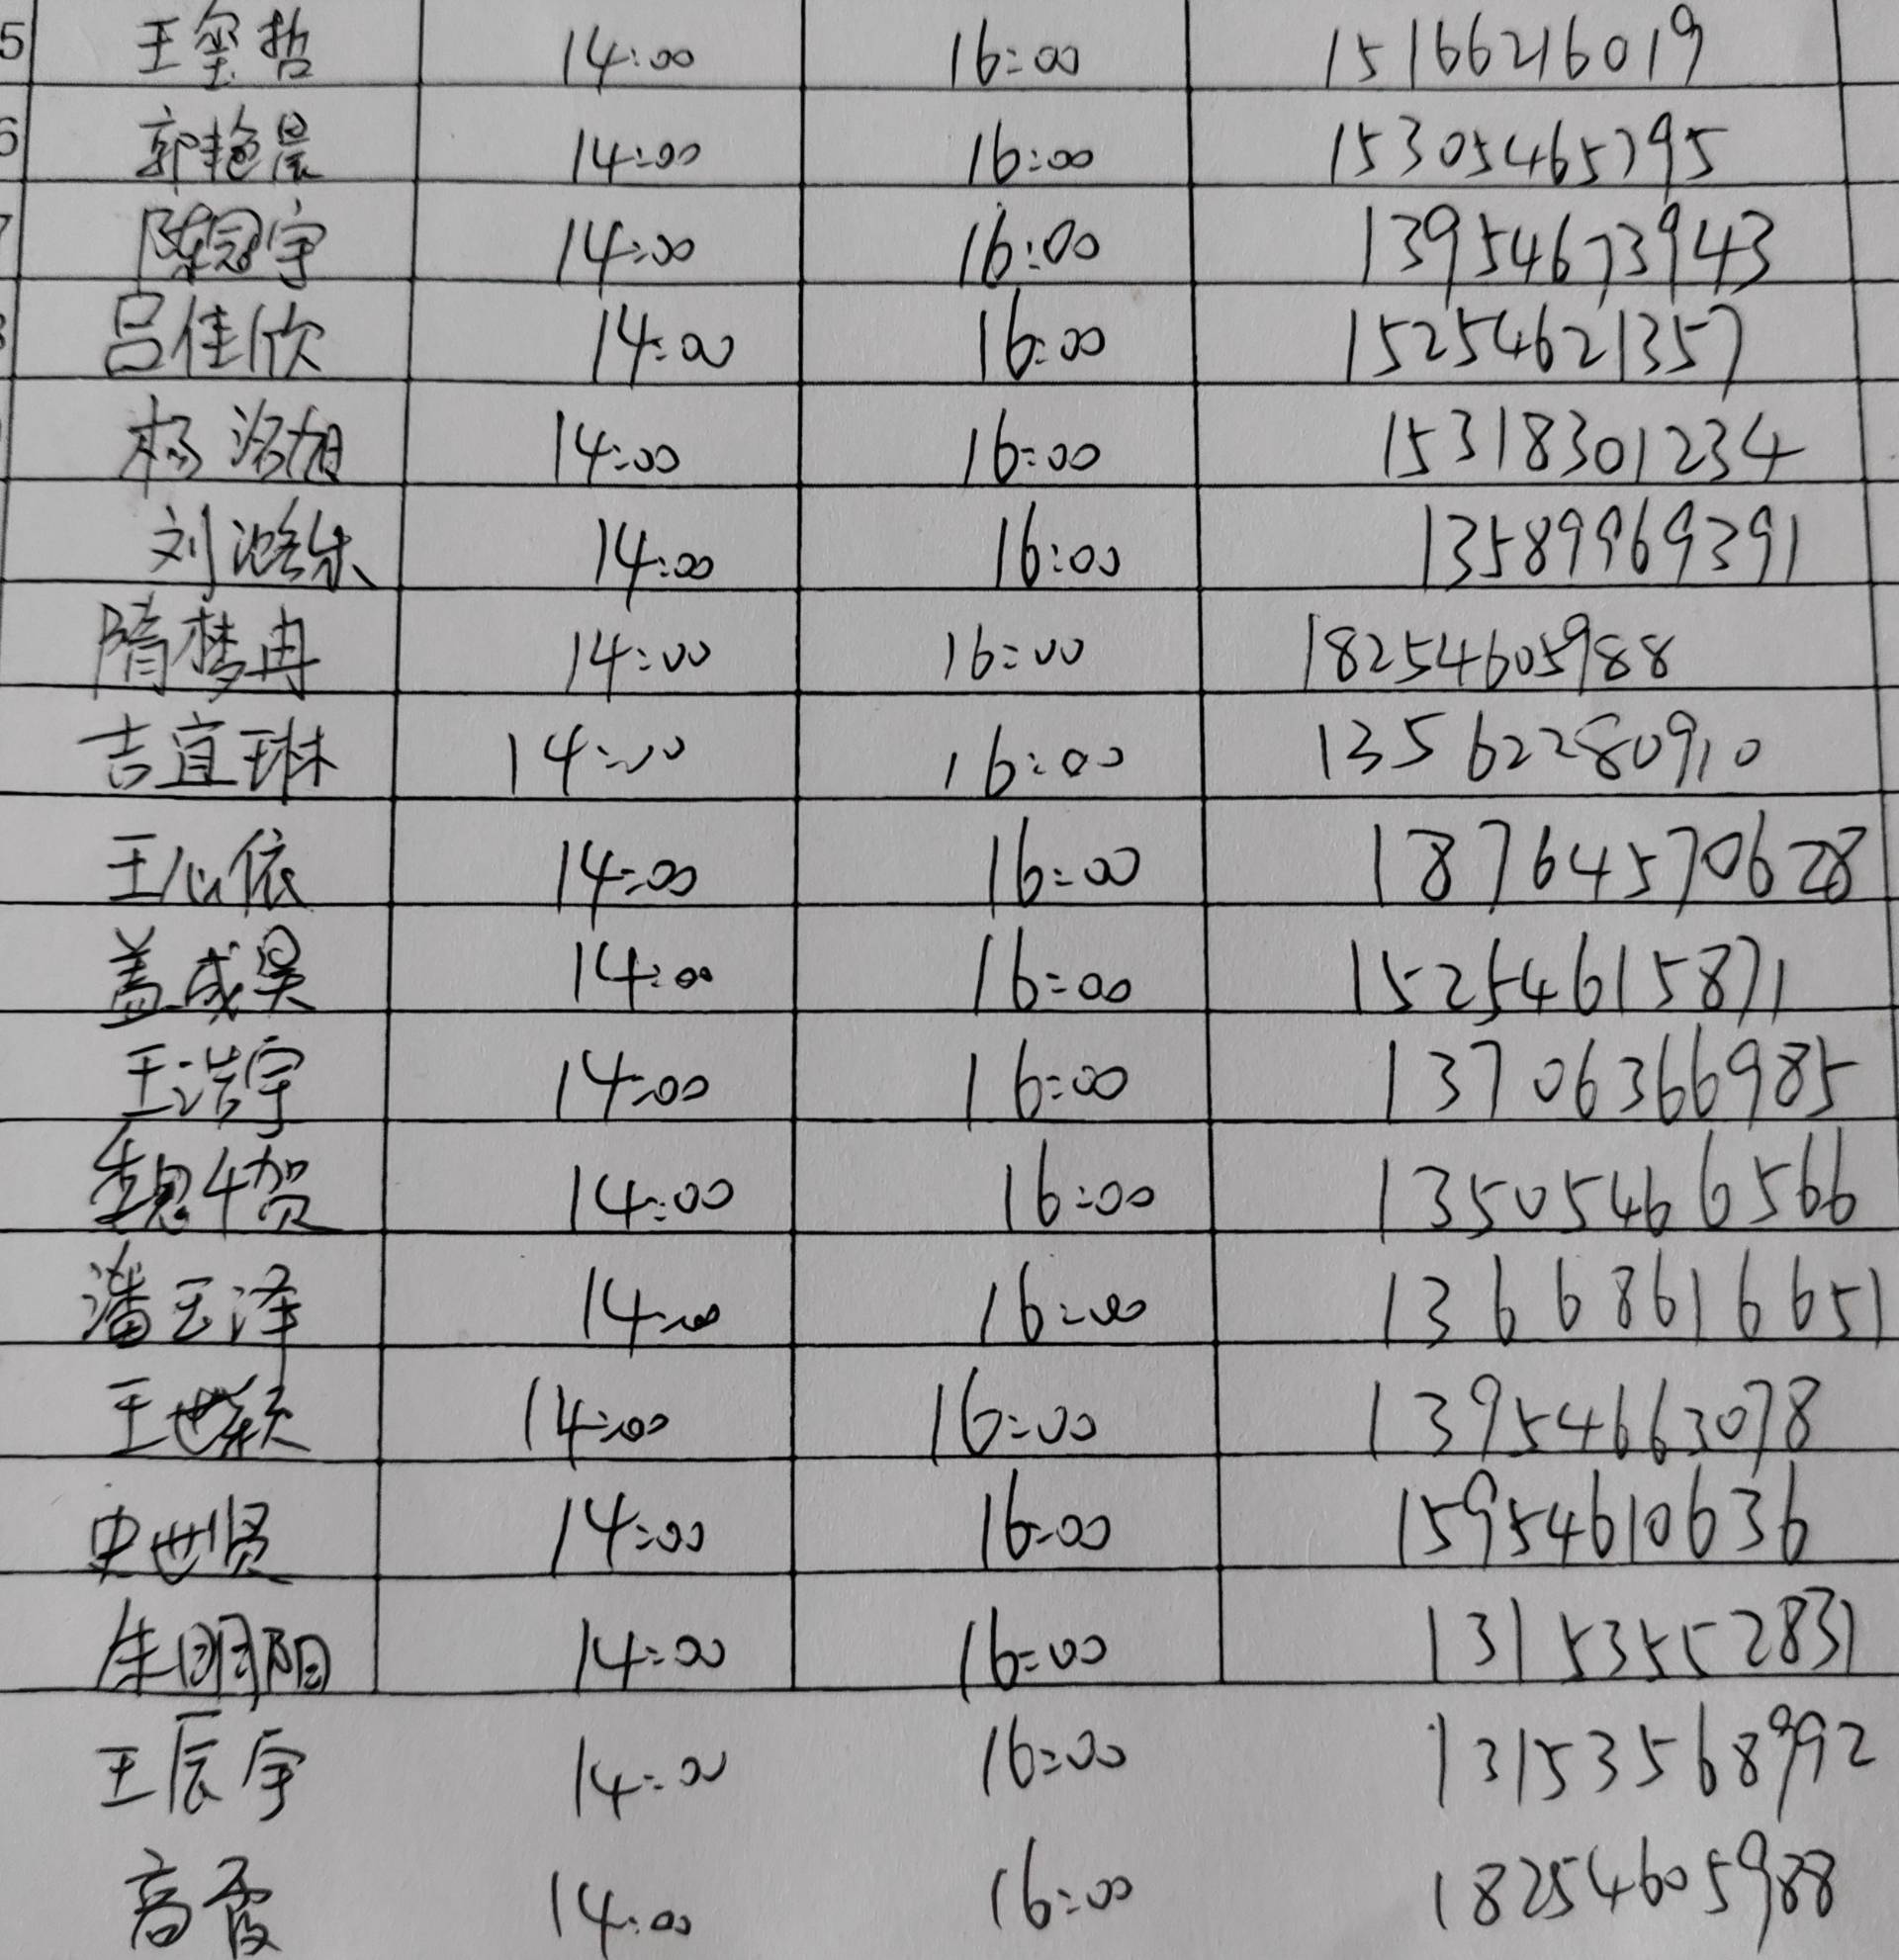 5 王玺哲 14:00 16:00 15166216019
6 郭艳晨 14:00 16:00 15305465795
7 陈冠宇 14:00 16:00 13954673943
吕佳欣 14:00 16:00 15254621357
杨洺旭 14:00 16:00 15318301234
刘 14:00 16:00 13589969391
隋梦冉 14:00 16:00 18254605988
吉宜琳 14:00 16:00 13562280910
王心依 14:00 16:00 18764570628
盖成昊 14:00 16:00 15254615871
王浩宇 14:00 16:00 13706366985
14:00 16:00 13505466566
潘玉泽 14:00 16:00 13668616651
王世颖 14:00 16:00 13954663078
史世贤 14:00 16:00 15954610636
朱明阳 14:00 16:00 13153552831
王辰宇 14:00 16:00 13153568992
高霞 14:00 16:00 18254605988